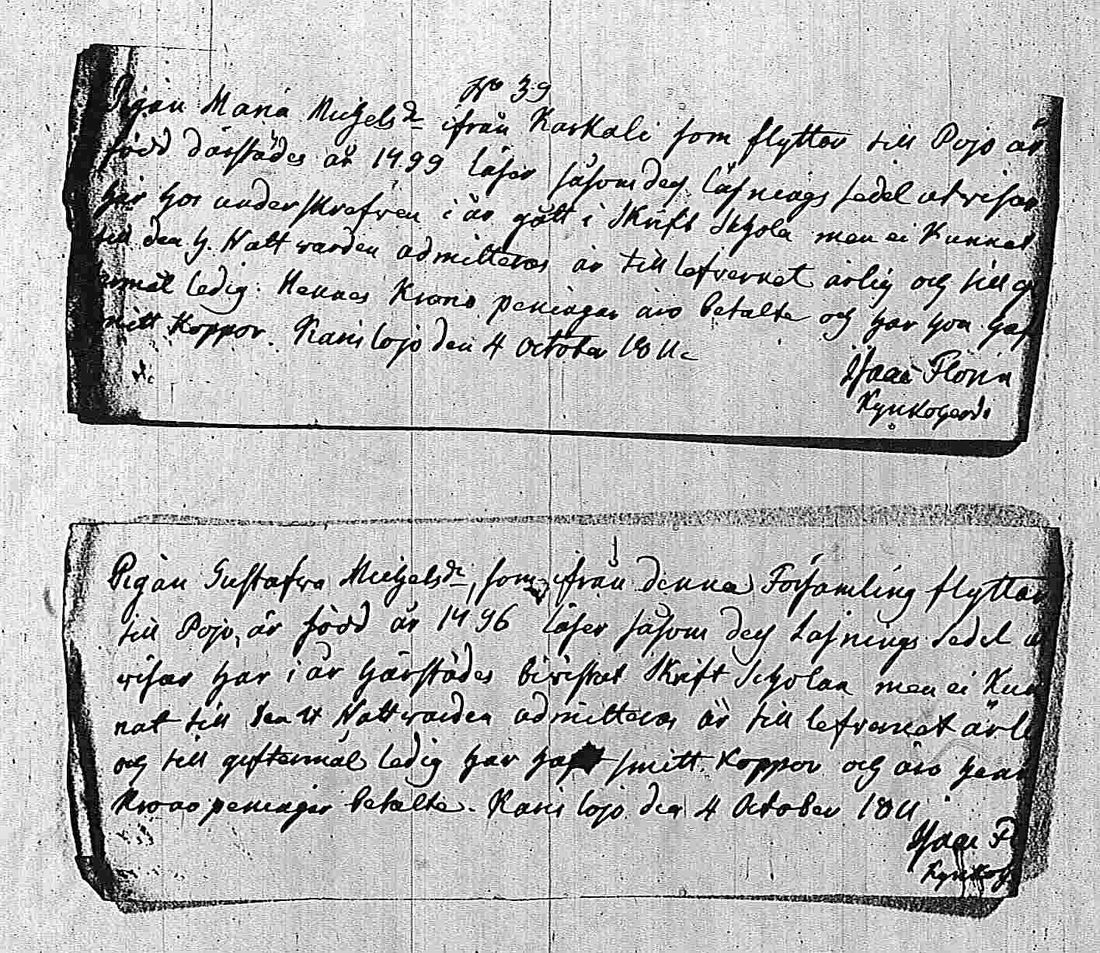 No 39
Pigan Maria Michelsdr ifrån Karkali som flyttar till Pojo är
född därstädes år 1799 läser såsom dess läsnings sedel utvisar
har hos underskrefven i år gått i Skrift Schola men ei Kunnat
till den H. Nattwarden admitteras är till lefvernet ärlig och till
ledig. Hennes Krono peningar äro betalte och har hon
Koppor. Karislojo den 4 October 1811
Isaac Florin
Kyrkoherde
Pigan Gustafva Michelsdr, som ifrån denna Församling flyttar
till Pojo, är född år 1796 läser såsom dess Läsnings Sedel
visar har i år härstädes bivistat Skrift Scholan men ei Kun
nat till den H Nattwarden admitteras är till lefvernet ärli
och till giftermål ledig har haft smitt Koppor och äro henn
Krono peningar betalte. Karislojo den 4 October 1811
Isaac F
Kyrkoh